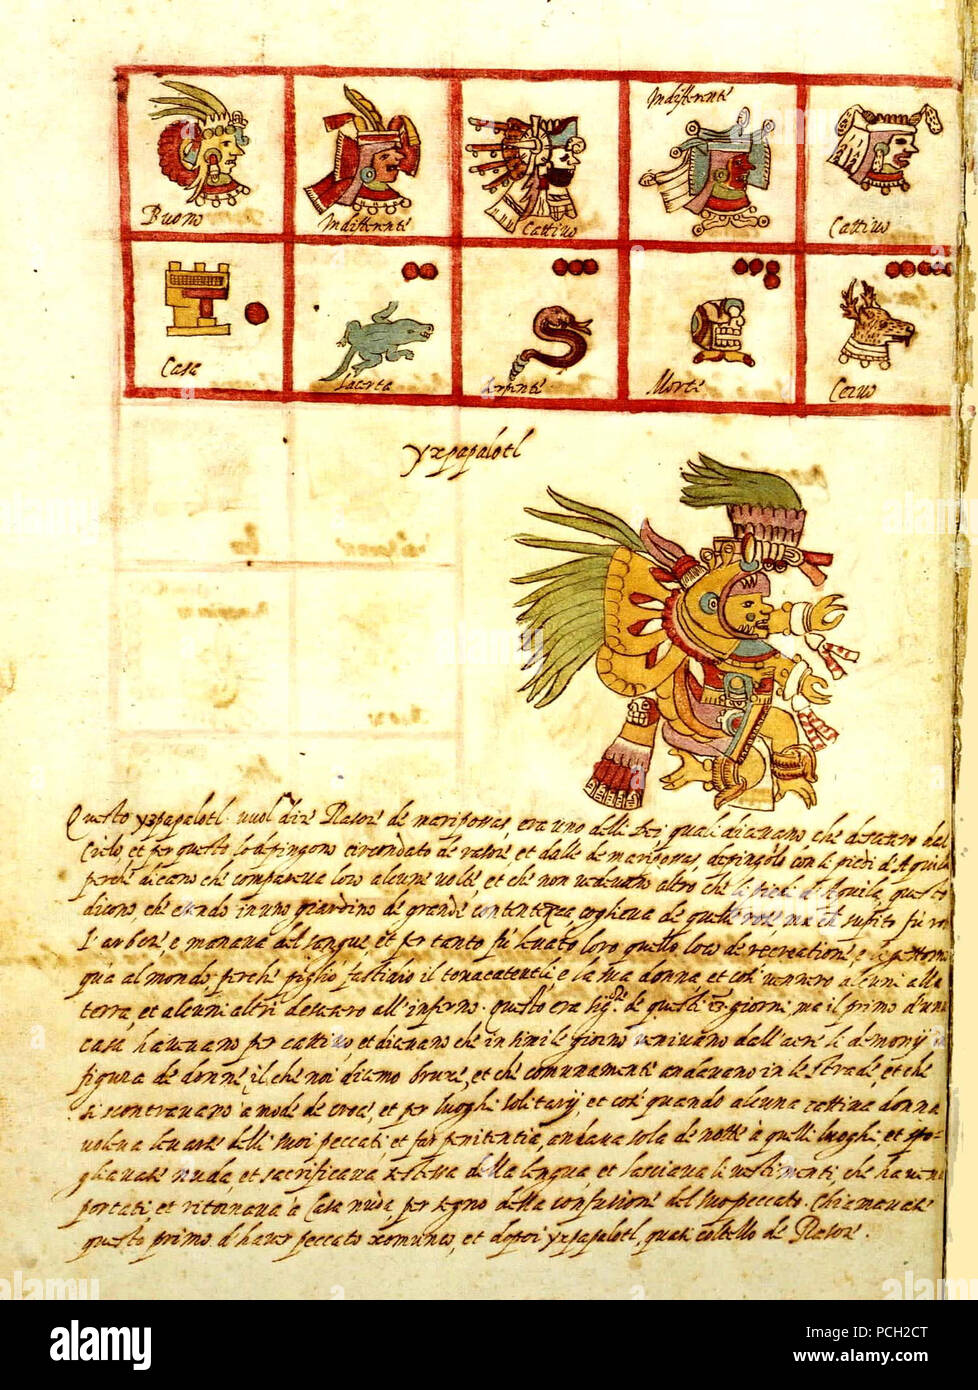 Indifferente
Buono
Indifferente
Cattiuo
Cattiuo
Casa
lacerta
serpente
Morte
Ceruo
yxpapalotl
Questo yzpapalotl uuol dire Rasore de mariposas, era uno delli Dei quali diceuano, che descesero dal
Cielo, et per questo lo depingono circondato de rasori, et d'alle de mariposas, depingolo con li piedi d'Aquila
perche dicono che compareua loro alcune uolte, et che non uedeuano altro che li piedi d'Aquila, questo
dicono, che essendo in uno giardino de grande contentezza coglieua de quelle rose, ma che subito fu ro
l'arbore, e manaua del sangue, et per tanto fu leuato loro quello loco de recreatione, e
qua al mondo, perche pigliò fastidio il tonacatentli, e la sua donna, et cosi uennero alcuni alla
terra, et alcuni altri descesero all'inferno. questo era sig.re de questi 13 giorni, ma il primo d'una
casa haueuano per cattiuo, et diceuano che in simile giorno ueniuano dall'aere li demonij in
figura de donne, il che noi diciamo bruxe, et che comunamente andauano in le strade, et che
si scontrauano a modo de croce, et per luoghi solitarij, et cosi quando alcuna cattiua donna
uoleua leuarse delli suoi peccati, et far penitentia, andaua sola de notte à quelli luoghi, et spo-
gliauase nuda, et sacrificaua se stessa della lengua, et lasciaua li uestimenti, che haueua
portati, et ritornaua à casa nuda per segno della confusione del suo peccato. Chiamauase
questo primo d'hauer peccato xomunco, et dopoi yxpapalotl, quasi coltello de Rasore.
alamy
PCH2CT
www.alamy.com